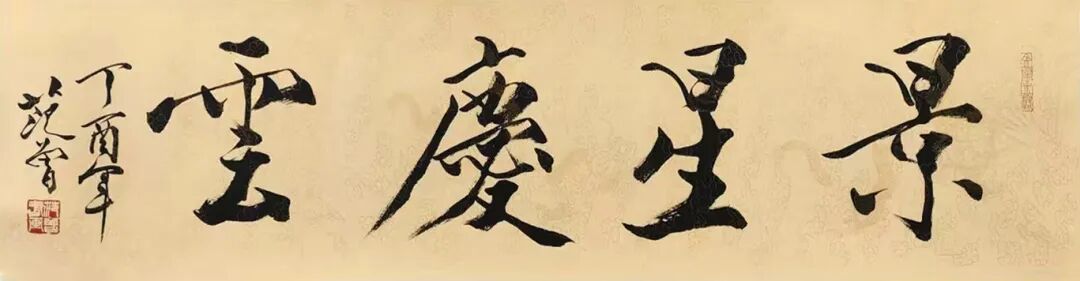 景星慶雲
丁酉年
范曾